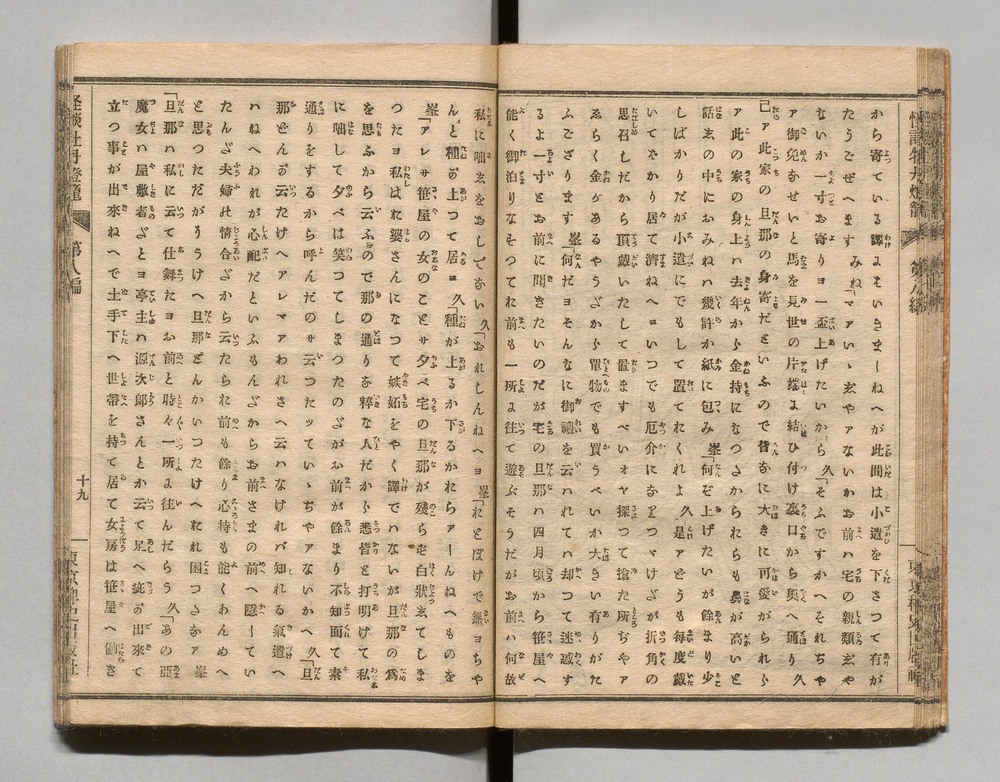 から寄ている譯よそいきましねへが此間は小遣を下さつて有が
たうごぜへますみね「マアいゝ玄やアないかお前ハ宅の親類玄や
ないか一寸お寄りヨ一盃上げたいから久「そふですかへそれぢや
ア御免なせいと馬を見世の片端よ結ひ付け裏口から奥へ通り久
己ア此家の旦那の身寄だといふので皆なに大きに可愛がられらア
此の家の身上ハ去年から金持になつたかられらも鼻が高いと
話玄の中におみねハ幾許か紙に包み峯「何ぞ上げたいが餘まり少
しばかりだが小遣にでもして置てれくれよ久是アどうも毎度戴
いてをかり居て濟ねへヨいつでも厄介になりつゞけだが折角の
思召しだから頂戴いたして置ますべいオヤ探つて搶た所ぢやア
ゑらく金があるやうだから單物でも買うべいか大きい有りがた
ふござります峯「何だヨそんなに御禮を云ハれてハ却つて迷惑す
るよ一寸とお前に聞きたいのだが宅の旦那ハ四月頃から笹屋へ
能く御泊りなそつてれ前も一所よ往て遊ぶそうだがお前ハ何故
私に咄玄をおしでない久「おれしんねへヨ峯「れとぼけで無ヨちや
んと種が上つて居ヨ久「種が上るか下るかれらアしんねへものを
峯「アレサ笹屋の女のことサ夕べ宅の旦那が殘らず白狀玄てしま
つたヨ私はれ婆さんになつて嫉妬をやく譯でハないが旦那の爲
を思ふから云ふので那の通りな粹な人だから悉皆と打明けて私
に咄して夕べは笑つてしまつたのだがお前が餘まり不知面て素
通りをするから呼んだのサ云つたッていゝぢやアないかへ久「旦
那どんが云たけへアレマアわれさへ云ハなけれバ知れる氣遣へ
ハねへわれが心配だといふもんだからお前さまの前へ隱してい
たんだ夫婦の情合だから云たられ前も餘り心持も能くあんめへ
と思つただがうけへ旦那どんかいつたけへれれ困つたなア峯
「旦那ハ私に云て仕舞たヨお前と時々一所よ往んだらう久「あの亞
魔女ハ屋敷者だとヨ亭主ハ源次郎さんとか云て足へ疵が出來て
立つ事が出來ねへで土手下へ世帶を持て居て女房は笹屋へ働き
怪談牡丹燈籠 第八編 十九